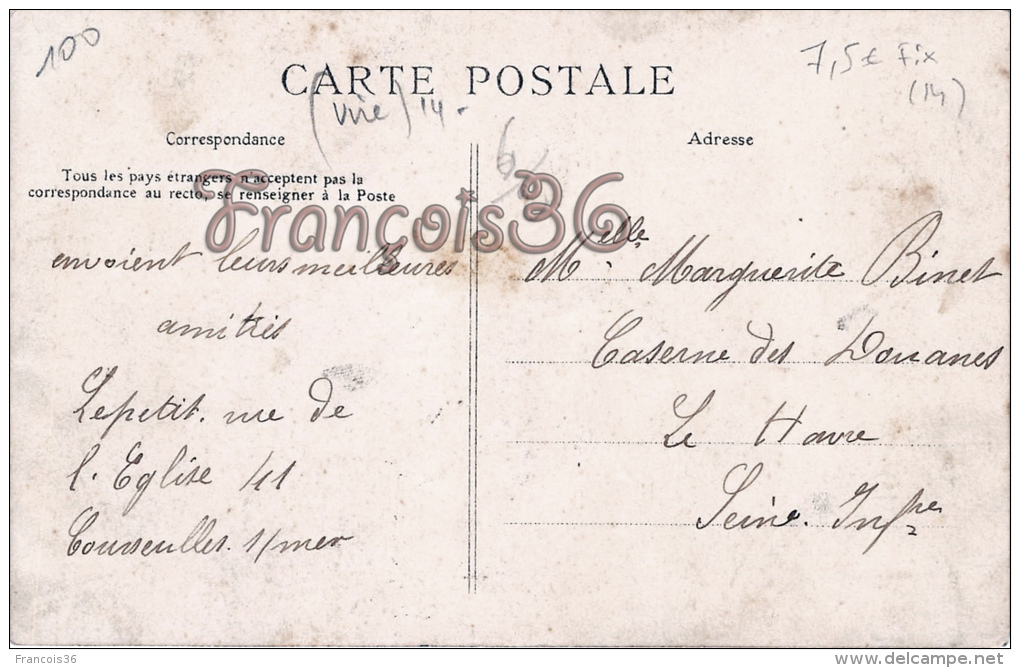 100
7,5€ Fix
(14)
CARTE POSTALE
(Vire) 14-
Correspondance
Adresse
Tous les pays étrangers n'acceptent pas la
correspondance au recto, se renseigner à la Poste
François36
envoient leurs meilleures
amitiés
Lepetit. rue de
l'Eglise 41
Courseulles. s/mer
Melle Marguerite Binet
Caserne des Douanes
Le Havre
Seine. Infre
Francois36
www.delcampe.net